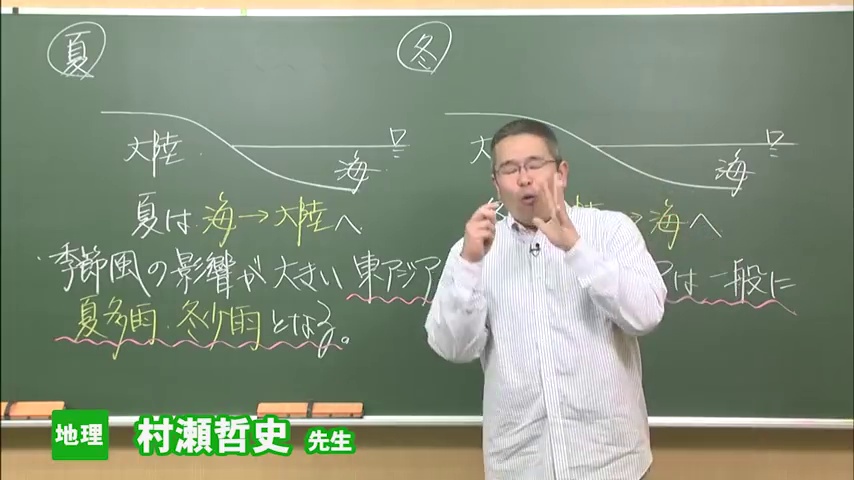 夏
冬
大陸
海
大
海
夏は 海→大陸へ
陸→海へ
季節風の影響が大きい 東アジア
アは一般に
夏多雨・冬少雨となる。
地理 村瀬哲史 先生